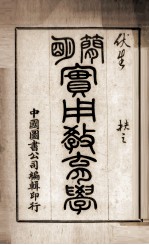 伏生
簡明
實用教育學
中國圖書公司編輯印行